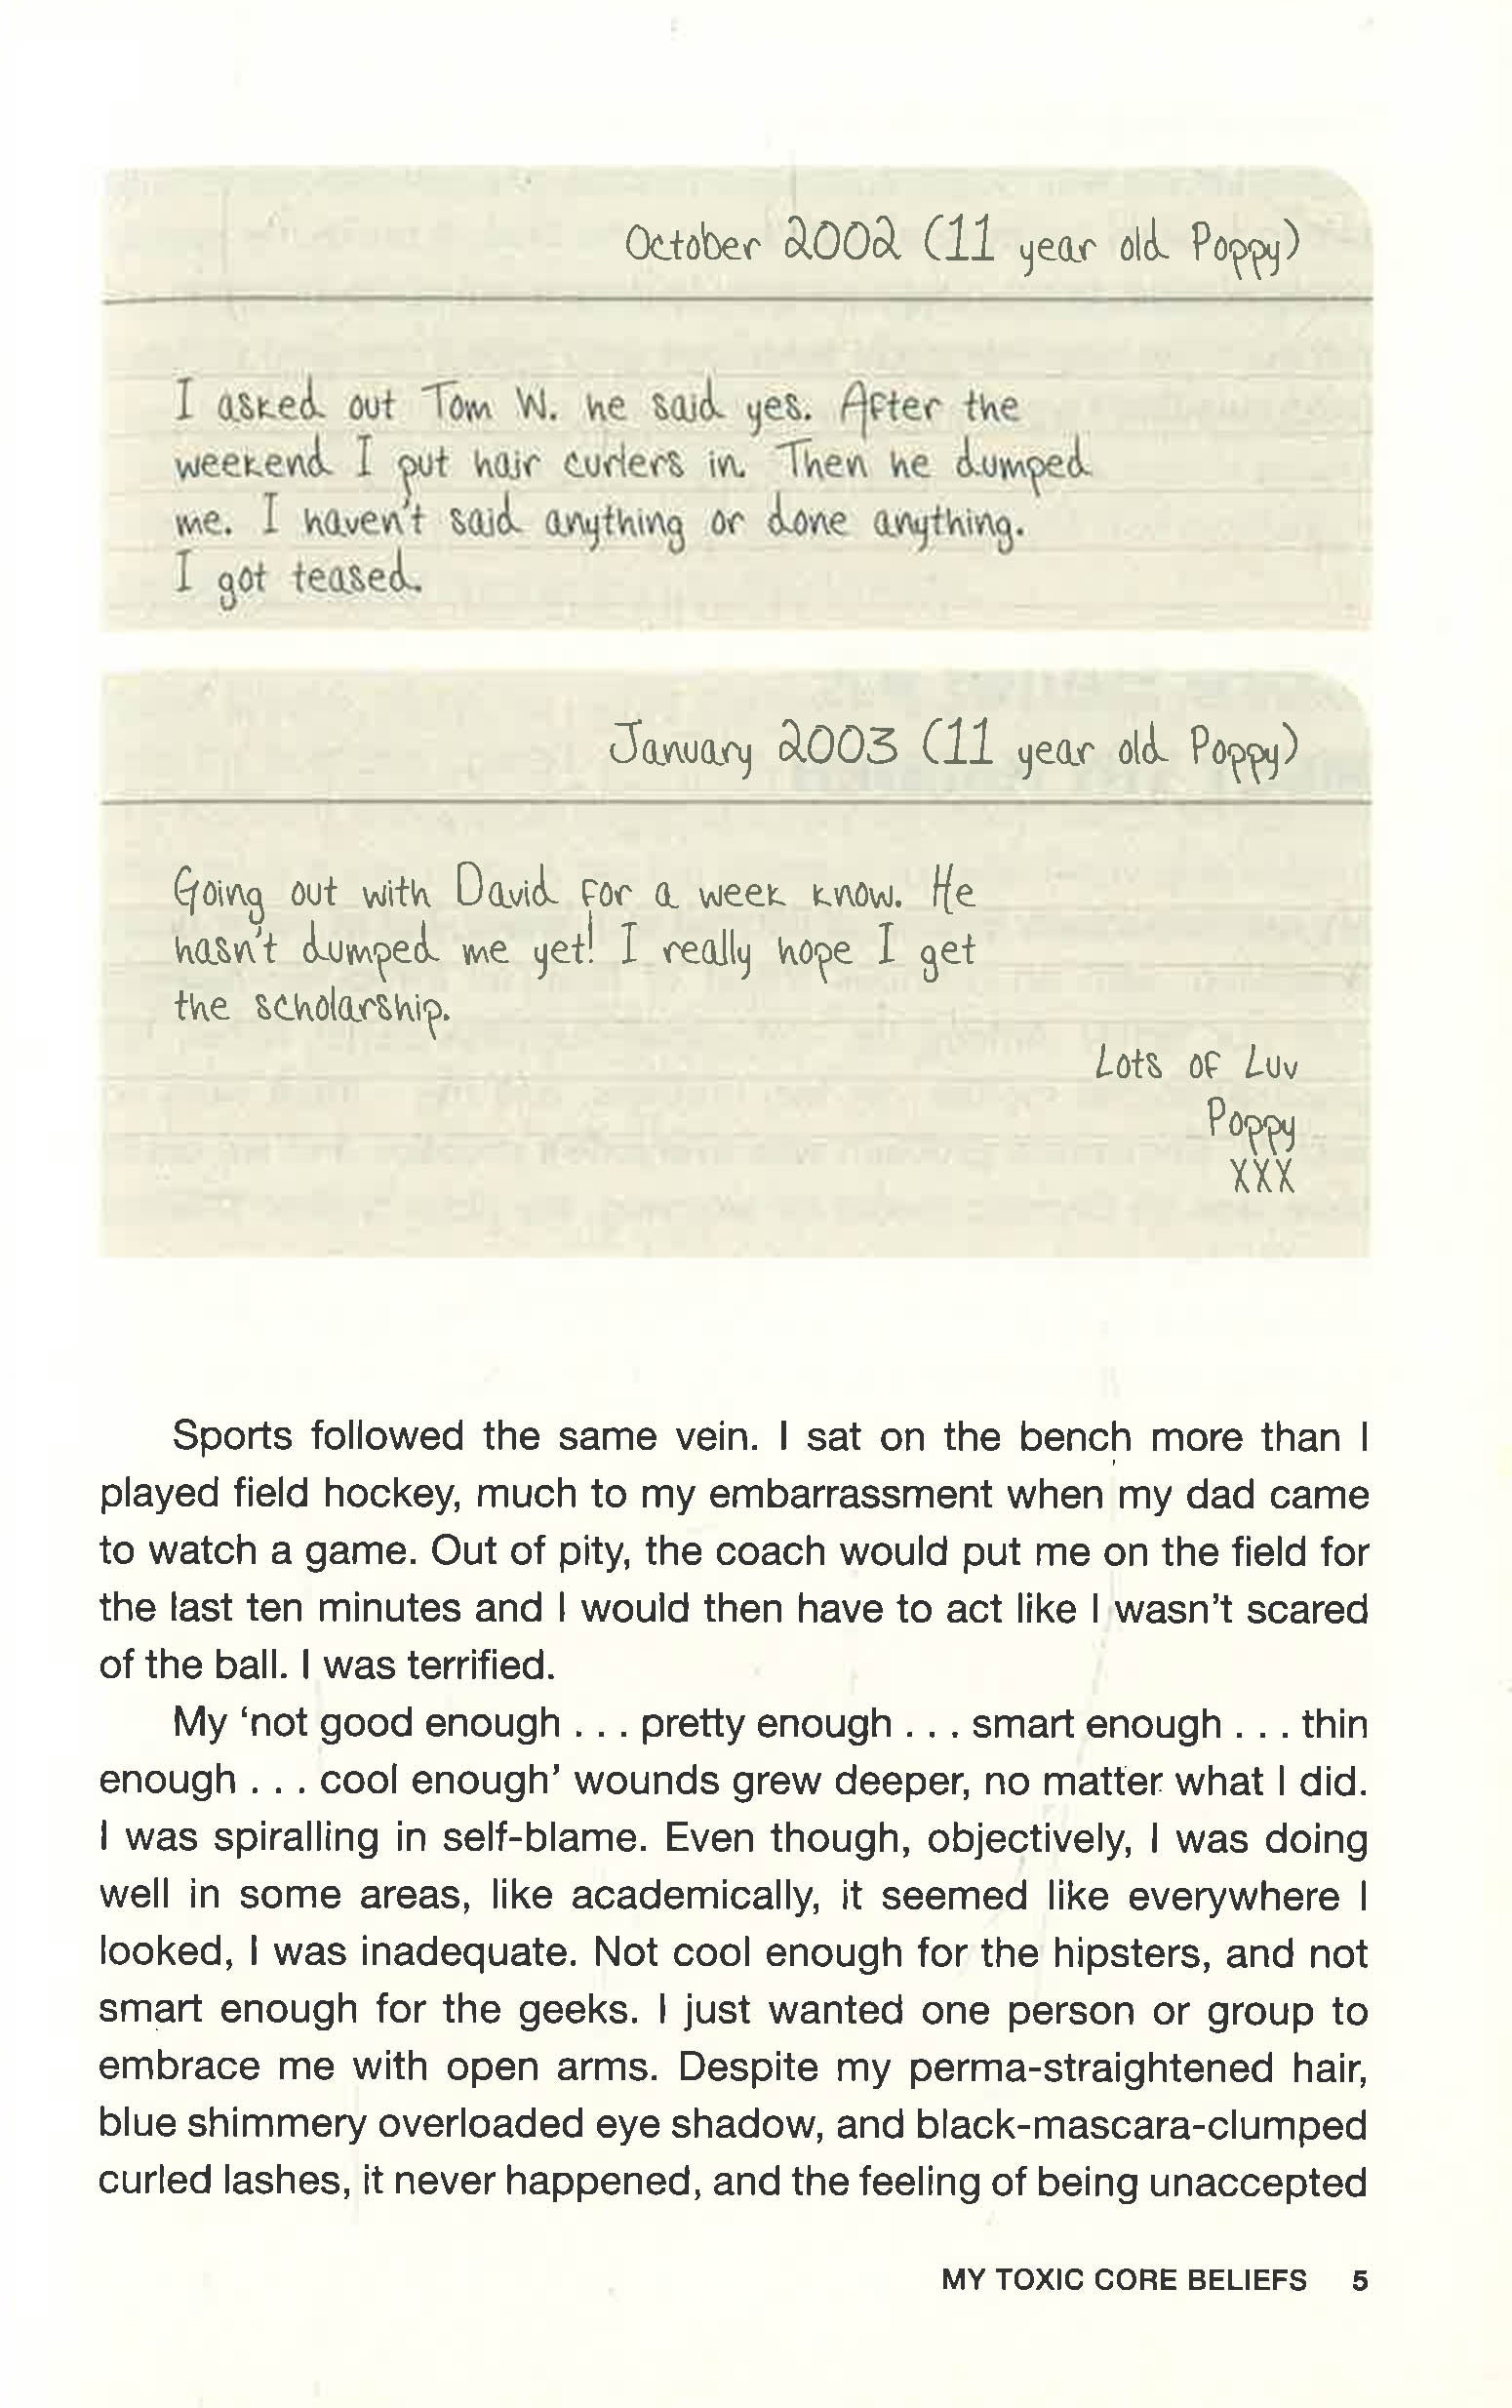 October 2002 (11 year old Poppy)
I asked out Tom W. he said yes. After the
weekend I put hair curlers in. Then he dumped
me. I haven't said anything or done anything.
I got teased.
January 2003 (11 year old Poppy)
Going out with David for a week know. He
hasn't dumped me yet! I really hope I get
the scholarship.
Lots of Luv
Poppy
XXX
Sports followed the same vein. I sat on the bench more than I
played field hockey, much to my embarrassment when my dad came
to watch a game. Out of pity, the coach would put me on the field for
the last ten minutes and I would then have to act like I wasn't scared
of the ball. I was terrified.
My ‘not good enough . . . pretty enough . . . smart enough . . . thin
enough . . . cool enough’ wounds grew deeper, no matter what I did.
I was spiralling in self-blame. Even though, objectively, I was doing
well in some areas, like academically, it seemed like everywhere I
looked, I was inadequate. Not cool enough for the hipsters, and not
smart enough for the geeks. I just wanted one person or group to
embrace me with open arms. Despite my perma-straightened hair,
blue shimmery overloaded eye shadow, and black-mascara-clumped
curled lashes, it never happened, and the feeling of being unaccepted
MY TOXIC CORE BELIEFS 5